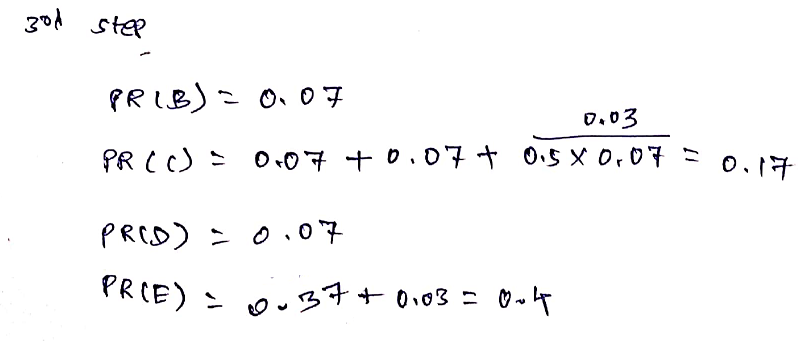 3rd step
PR(B) = 0.07
0.03
PR(C) = 0.07 + 0.07 + 0.5 X 0.07 = 0.17
PR(D) = 0.07
PR(E) = 0.37 + 0.03 = 0.4